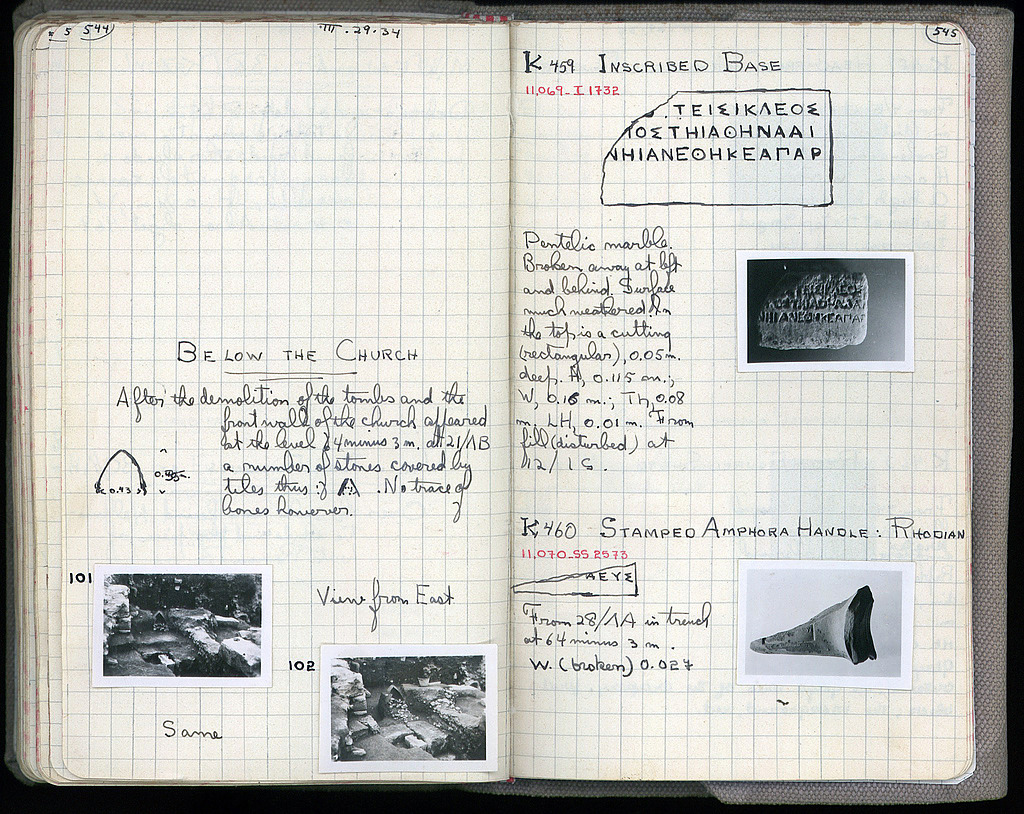 544
III.29.34
BELOW THE CHURCH
After the demolition of the tombs and the
front wall of the church appeared
at the level 64 minus 3 m. at 21/ΛB
a number of stones covered by
tiles thus: . No trace of
bones however.
0.43
101
View from East
102
Same
545
K 459 INSCRIBED BASE
11,069_I 1732
. ΤΕΙΣΙΚΛΕΟΣ
ΙΟΣΤΗΙΑΘΗΝΑΑΙ
ΝΗΙΑΝΕΘΗΚΕΑΠΑΡ
Pentelic marble.
Broken away at left
and behind. Surface
much weathered. In
the top is a cutting
(rectangular), 0.05 m.
deep. H, 0.115 m.;
W, 0.16 m.; Th, 0.08
m. LH, 0.01 m. From
fill (disturbed) at
K 460 STAMPED AMPHORA HANDLE: RHODIAN
11,070_SS 2573
ΕΥΣ
From 28/ΛA in trench
at 64 minus 3 m.
W. (broken) 0.027